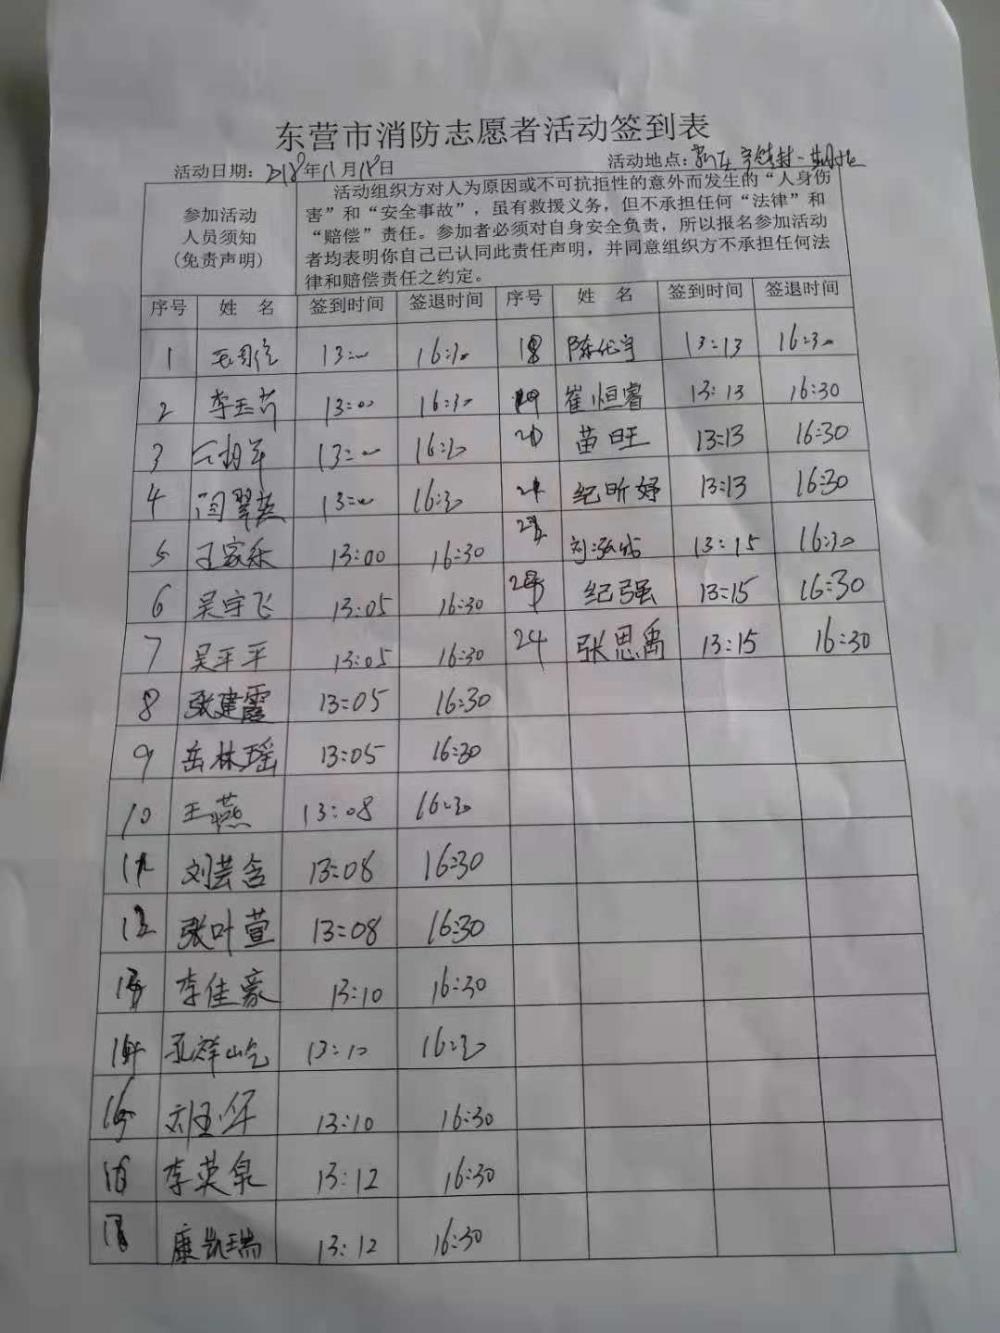 东营市消防志愿者活动签到表
活动日期: 2018年11月18日 活动地点:
参加活动
人员须知
(免责声明)
活动组织方对人为原因或不可抗拒性的意外而发生的“人身伤
害”和“安全事故”，虽有救援义务，但不承担任何“法律”和
“赔偿”责任。参加者必须对自身安全负责，所以报名参加活动
者均表明你自己已认同此责任声明，并同意组织方不承担任何法
律和赔偿责任之约定。
序号 姓 名 签到时间 签退时间 序号 姓 名 签到时间 签退时间
1 13:00 16:30 18 13:13 16:30
2 李玉芹 13:00 16:30 19 崔恒睿 13:13 16:30
3 13:00 16:30 20 苗旺 13:13 16:30
4 闫翠英 13:00 16:30 21 纪昕妤 13:13 16:30
5 王家乐 13:00 16:30 22 13:15 16:30
6 吴宇飞 13:05 16:30 23 纪强 13:15 16:30
7 吴平平 13:05 16:30 24 张思禹 13:15 16:30
8 张建霞 13:05 16:30
9 岳林瑶 13:05 16:30
10 王燕 13:08 16:30
11 刘芸含 13:08 16:30
12 张叶萱 13:08 16:30
13 李佳豪 13:10 16:30
14 13:10 16:30
15 13:10 16:30
16 李英泉 13:12 16:30
17 康凯瑞 13:12 16:30